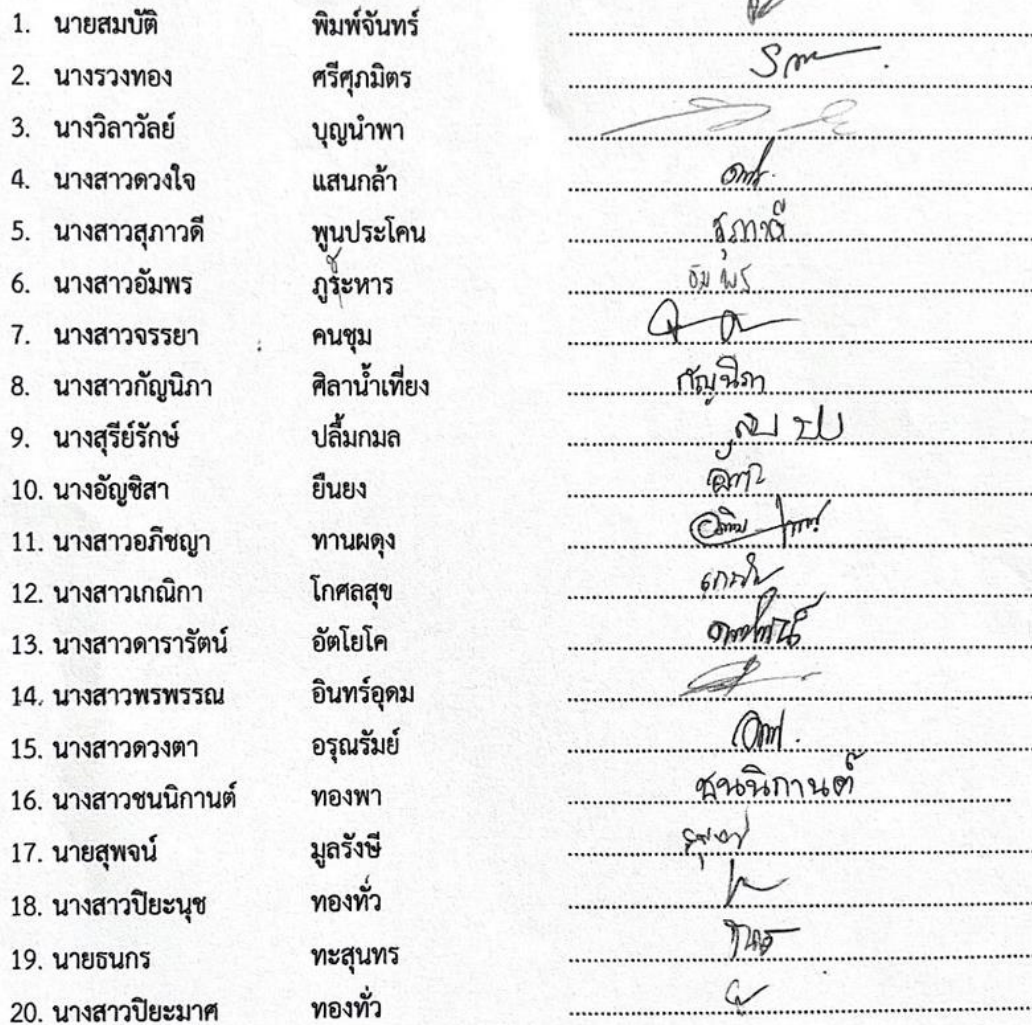 1. นายสมบัติ พิมพ์จันทร์
2. นางรวงทอง ศรีศุภมิตร
3. นางวิลาวัลย์ บุญนำพา
4. นางสาวดวงใจ แสนกล้า
5. นางสาวสุภาวดี พูนประโคน สุภาวดี
6. นางสาวอัมพร ภูระหาร อัมพร
7. นางสาวจรรยา คนชุม
8. นางสาวกัญนิภา ศิลาน้ำเที่ยง กัญนิภา
9. นางสุรีย์รักษ์ ปลื้มกมล
10. นางอัญชิสา ยืนยง
11. นางสาวอภิชญา ทานผดุง
12. นางสาวเกณิกา โกศลสุข
13. นางสาวดารารัตน์ อัตโยโค
14. นางสาวพรพรรณ อินทร์อุดม
15. นางสาวดวงตา อรุณรัมย์
16. นางสาวชนนิกานต์ ทองพา ชนนิกานต์
17. นายสุพจน์ มูลรังษี
18. นางสาวปิยะนุช ทองทั่ว
19. นายธนกร ทะสุนทร
20. นางสาวปิยะมาศ ทองทั่ว